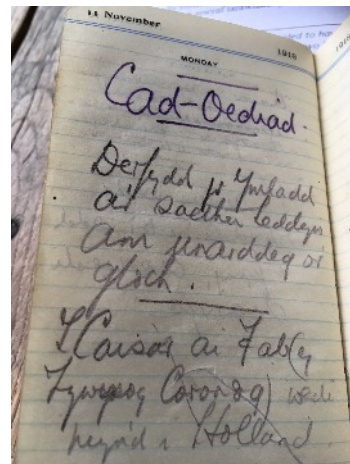 11 November 1918
MONDAY
Cad-Oediad.
Derfydd yr Ymladd
a'r saethu heddyw
am unarddeg o'r
gloch.
Y Caisar a'i Fab (y
Tywysog Coronog) wedi
i Holland.